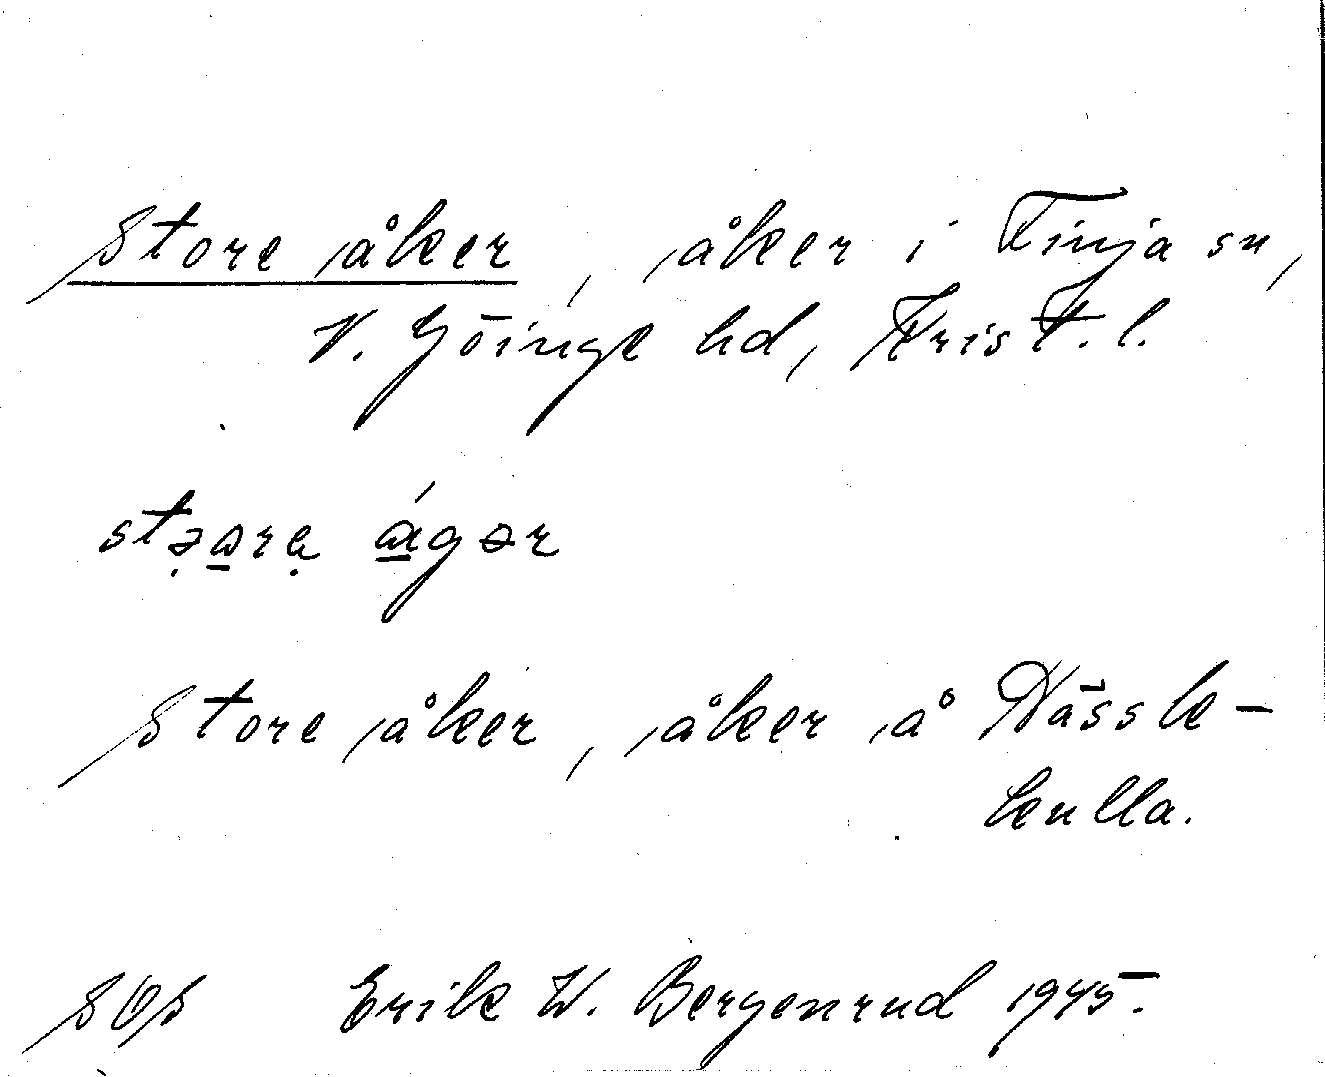 Store åker, åker i Finja sn,
V. Göinge hd, Krist. l.
Store åker, åker å Nässle-
kulla.
SOS Erik W. Bergenrud 1945.